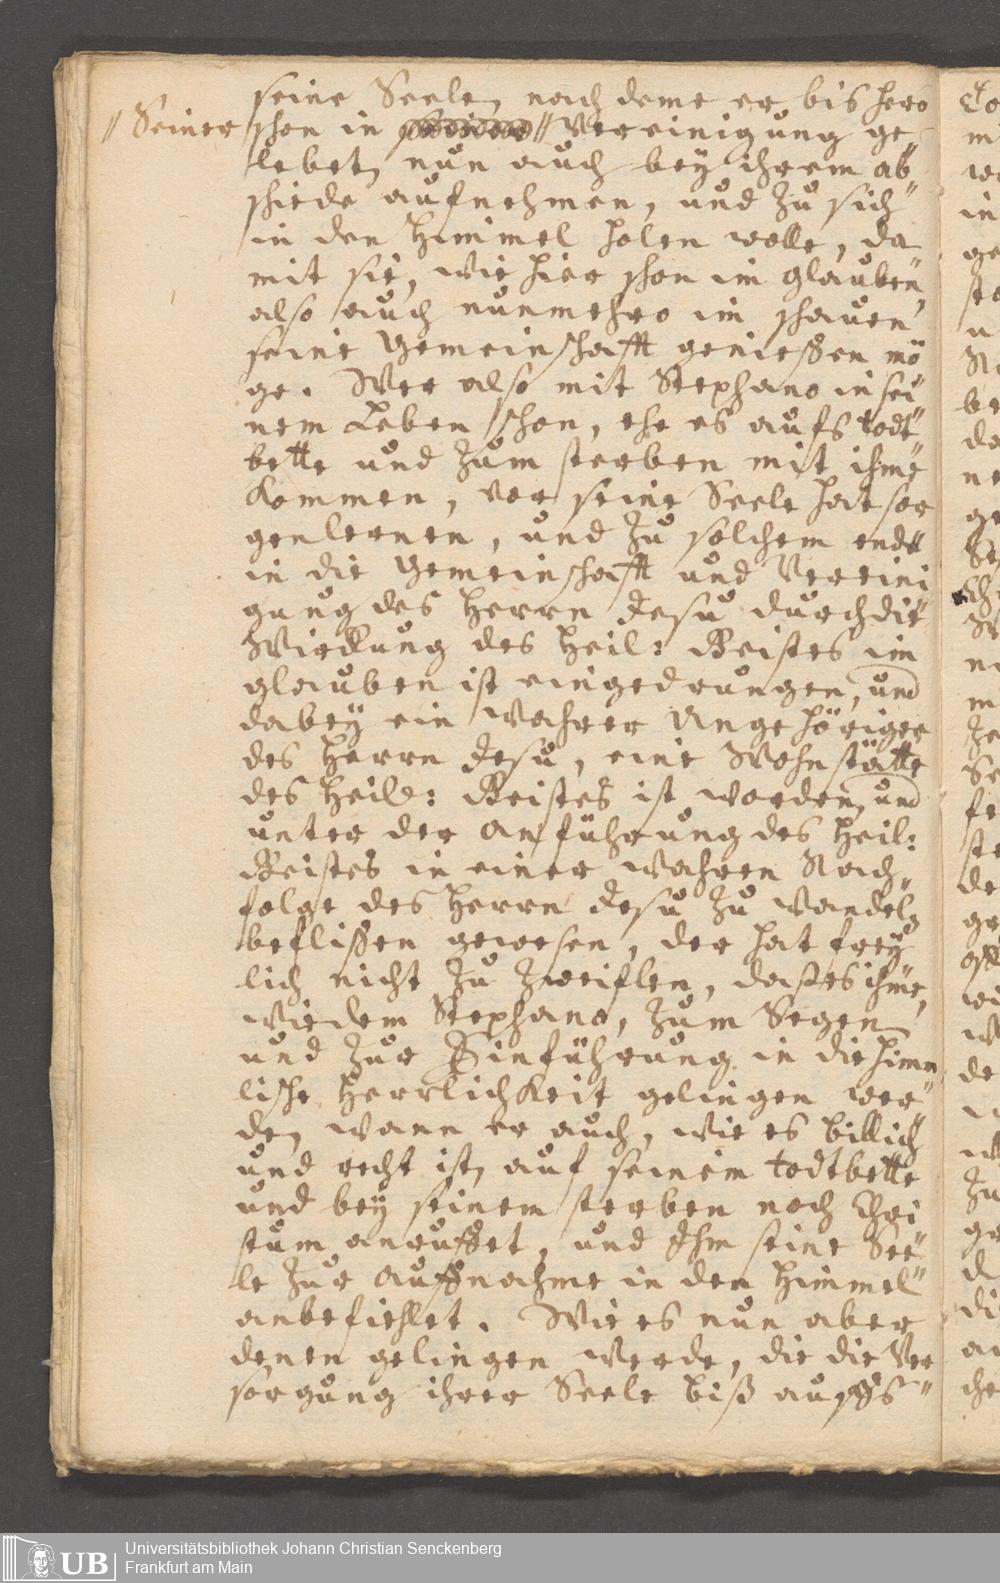 seine Seele, nach deme er bishero
// Seiner schon in // Vereinigung ge-
lebet, nun auch bey ihrem ab-
schiede aufnehmen, und zu sich
in den Himmel holen wolle, da
mit sie, wie hier schon im glauben,
also auch nunmehro im schauen
seine Gemeinschafft geniessen mö
ge. Wer also mit Stephano in sei
nem Leben schon, ehe es aufs todt
bette und zum sterben mit ihme
kommen, vor seine Seele hat sor
gen lernen, und zu solchem ende
in die Gemeinschafft und Vereini
gung des Herrn Jesu durch die
Wirckung des Heil: Geistes im
glauben ist eingedrungen, und
dabey ein wahrer Angehöriger
des Herrn Jesu, eine Wohnstätte
des Heil: Geistes ist worden, und
unter der anführung des Heil:
Geistes in einer wahren Nach-
folge des Herrn Jesu zu wandeln
beflißen gewesen, der hat frey
lich nicht zu zweiflen, daß es ihme,
wie dem Stephano, zum Segen
und zur Einführung in die himm
lische Herrlichkeit gelingen wer
de, wann er auch, wie es billich
und recht ist, auf seinem todtbette
und bey seinem sterben noch Chri
stum anruffet, und Ihm seine See
le zur auffnahme in den Himmel
anbefiehlet. Wie es nun aber
denen gelingen werde, die die Ver
sorgung ihrer Seele biß auffs
UB
Universitätsbibliothek Johann Christian Senckenberg
Frankfurt am Main